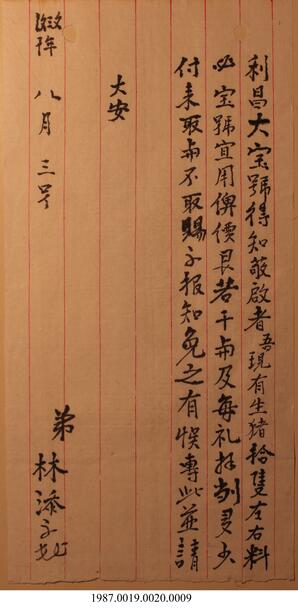 利昌大宝號得知敬啟者吾現有生猪拾隻左右料
必宝號宜用俾價艮若干両及每礼拜刣多少
付来取両不取賜字报知免之有悞專此並請
大安
八月三号
弟林添
1987.0019.0020.0009